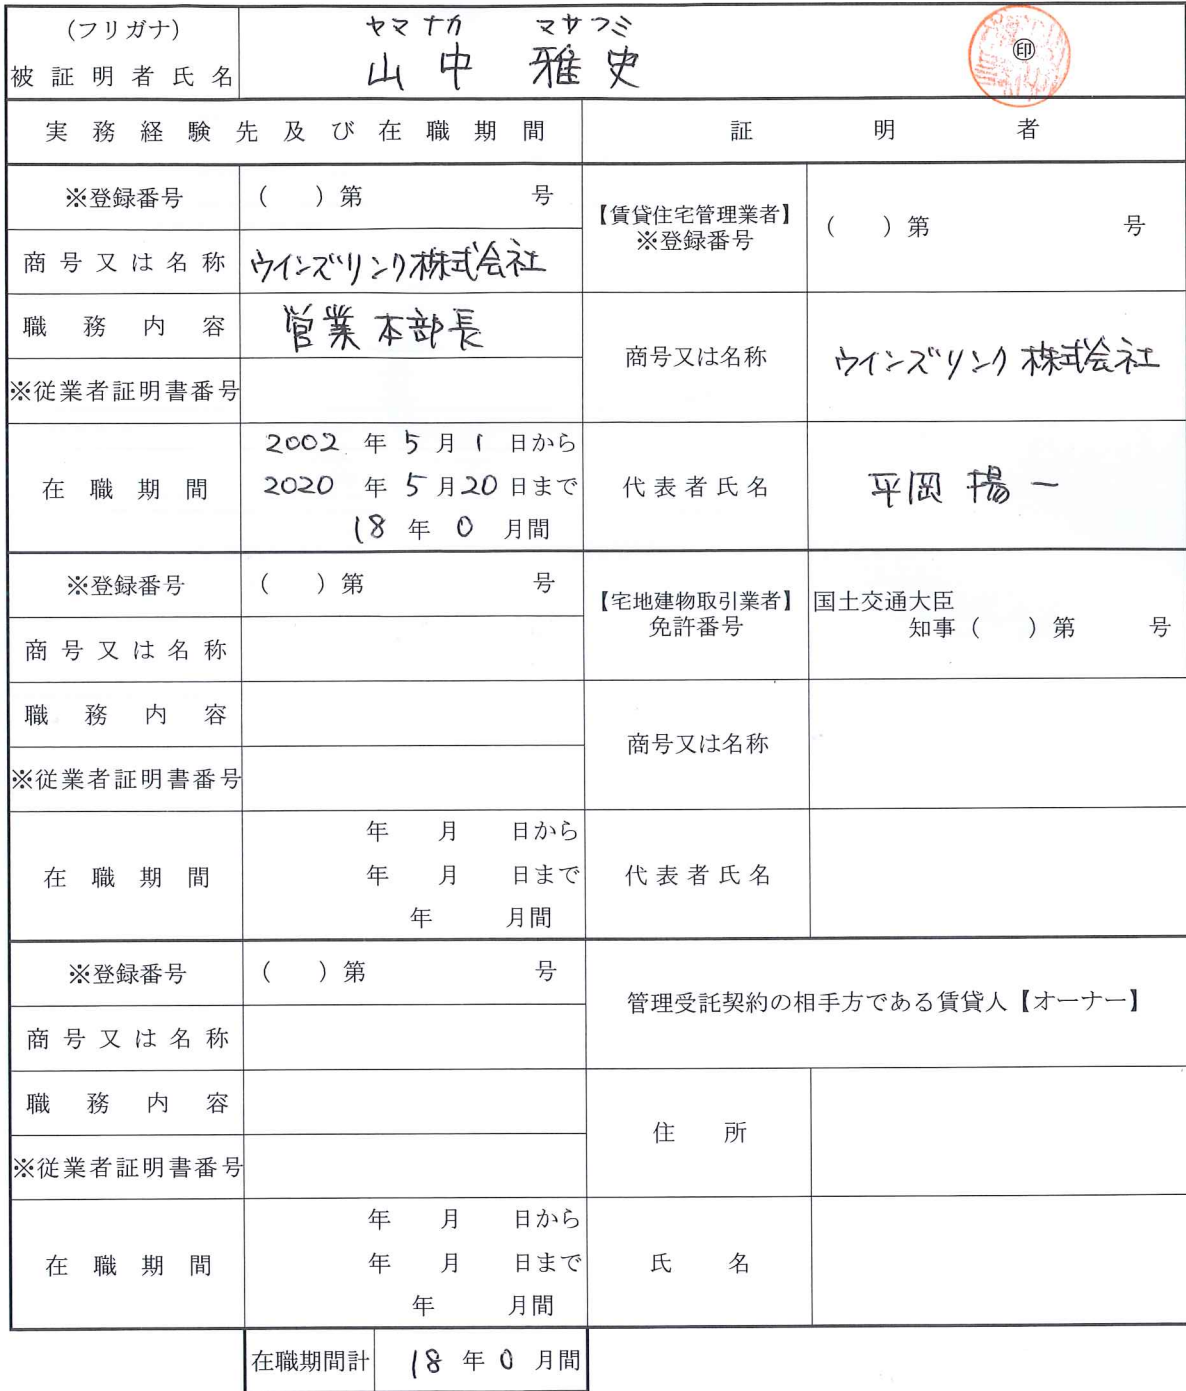 (フリガナ) ヤマナカ マサフミ
被証明者氏名 山中 雅史 ㊞
実務経験先及び在職期間 証明者
※登録番号 ( )第 号 【賃貸住宅管理業者】 ※登録番号 ( )第 号
商号又は名称 ウインズリンク株式会社
職務内容 営業本部長 商号又は名称 ウインズリンク株式会社
※従業者証明書番号
在職期間 2002年5月1日から
2020年5月20日まで 代表者氏名 平岡 陽一
18年0月間
※登録番号 ( )第 号 【宅地建物取引業者】 免許番号 国土交通大臣
知事( )第 号
商号又は名称
職務内容 商号又は名称
※従業者証明書番号
在職期間 年 月 日から
年 月 日まで 代表者氏名
年 月間
※登録番号 ( )第 号 管理受託契約の相手方である賃貸人【オーナー】
商号又は名称
職務内容 住所
※従業者証明書番号
在職期間 年 月 日から
年 月 日まで 氏名
年 月間
在職期間計 18年0月間